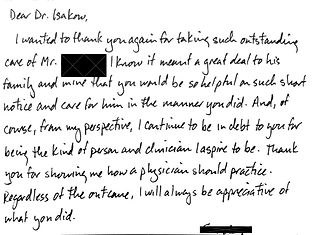 Dear Dr. Isakow,
I wanted to thank you again for taking such outstanding
care of Mr. I know it meant a great deal to his
family and mine that you would be so helpful on such short
notice and care for him in the manner you did. And, of
course, from my perspective, I continue to be in debt to you for
being the kind of person and clinician I aspire to be. Thank
you for showing me how a physician should practice.
Regardless of the outcome, I will always be appreciative of
what you did.